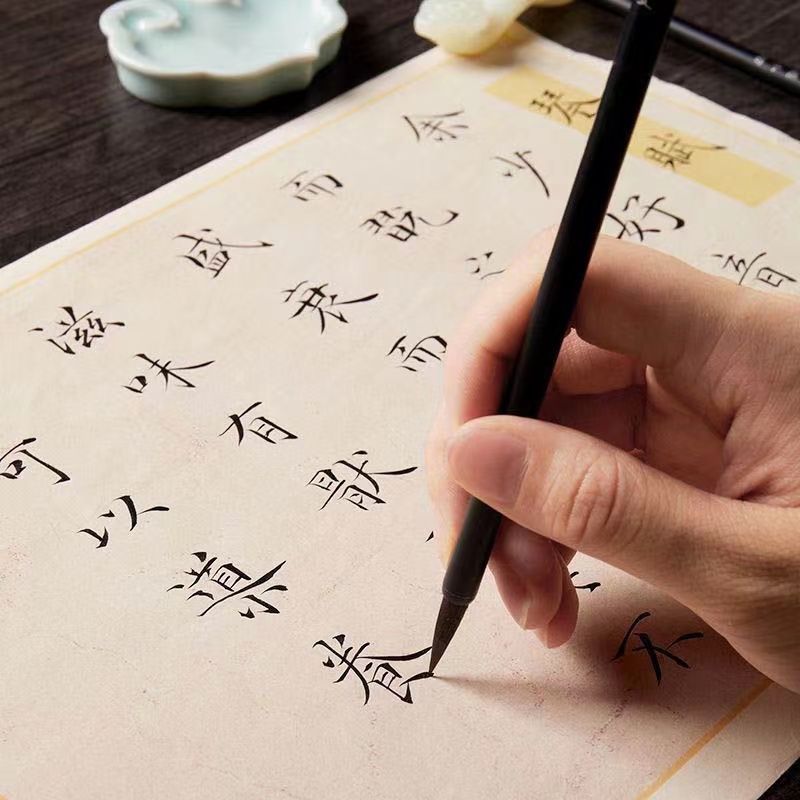 琴賦
余少好音
而翫
盛衰而
滋味有猒不
可以導養